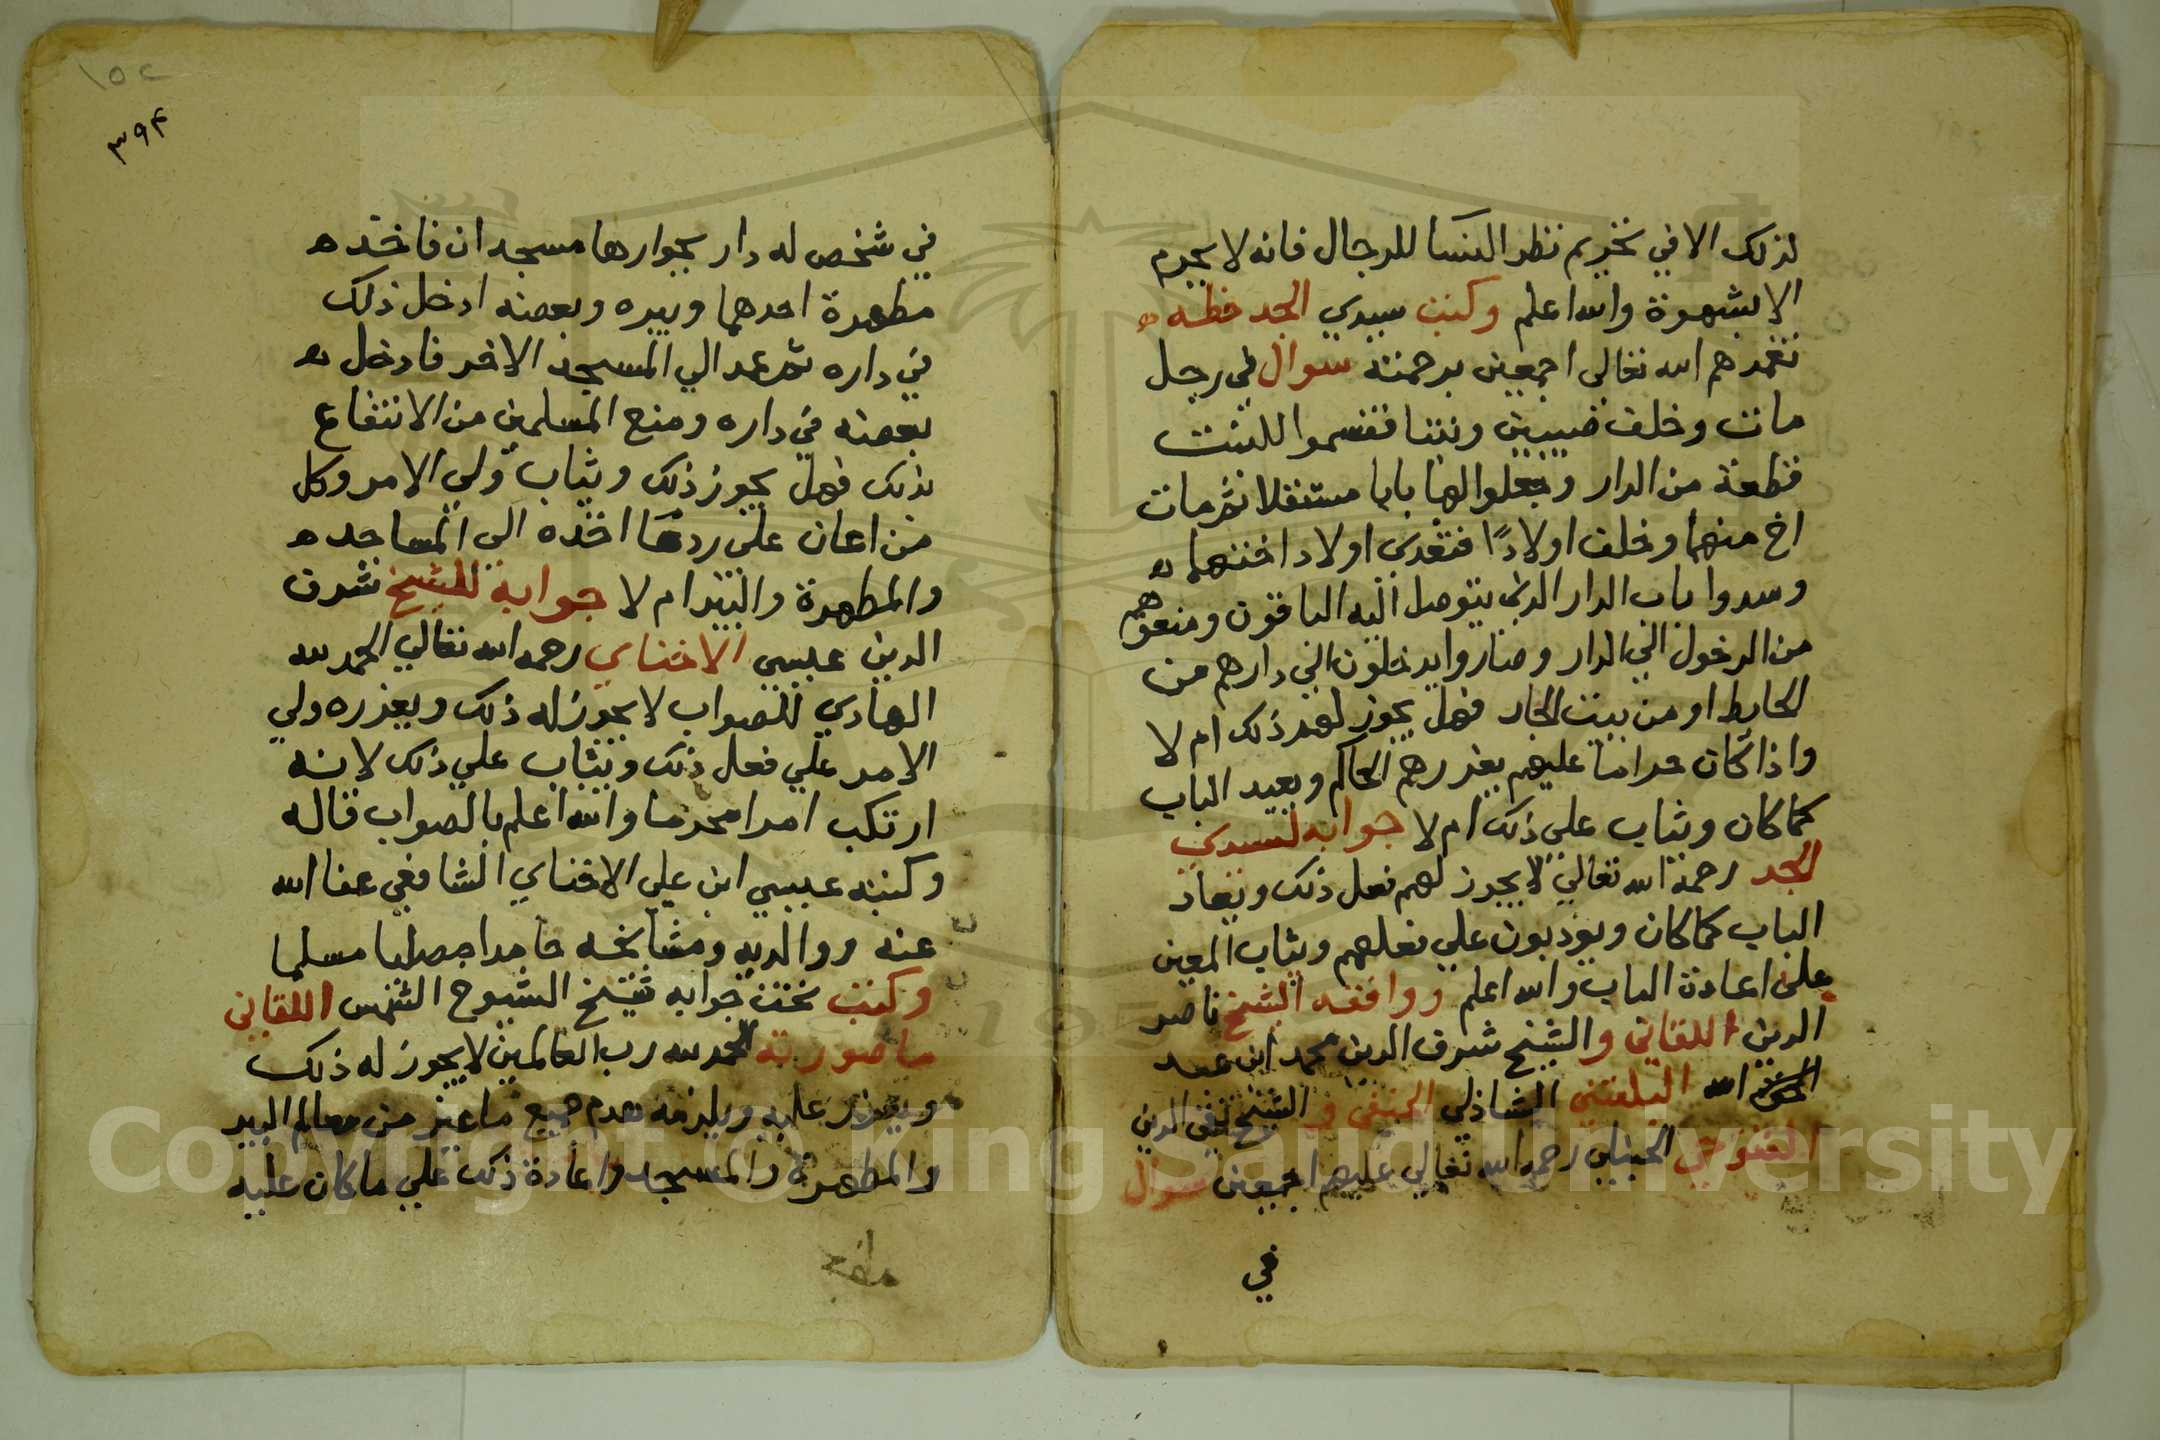 لذلك الا في تحريم نظر النسا للرجال فانه لا يحرم
الا بشهوة والله اعلم وكتب سيدي الجد خطه
تغمدهم الله تعالى اجمعين برحمته سوال في رجل
مات وخلف وبنتا فقسموا للبنت
قطعة من الدار وجعلوا لها بابا مستقلا ثم مات
اخ منهما وخلف اولادًا فتعدى اولاد اختهما
وسدوا باب الدار الذي يتوصل اليه الباقون ومنعوهم
من الدخول الي الدار وصاروا يدخلون الي دارهم من
الحايط او من بيت الجار فهل يجوز لهم ذلك ام لا
واذا كان حراما عليهم يعزرهم الحاكم ويعيد الباب
كما كان ويثاب على ذلك ام لا جوابه لسيدي
الجد رحمة الله تعالي لا يجوز لهم فعل ذلك ويعاد
الباب كما كان ويودبون علي فعلهم ويثاب المعين
على اعادة الباب والله اعلم ووافقه الشيخ ناصر
الدين اللقاني والشيخ شرف الدين محمد ابن عبد
الله الشاذلي الحنفي و الشيخ تقي الدين
الفتوحي الحنبلي رحمه الله تعالي عليهم اجمعين سوال
في
١٥٢
٣٩٤
في شخص له دار بجوارها مسجدان فاخذ
مطهرة احدهما وبيره وبعضه ادخل ذلك
في داره ثم عمد الي المسجد الاخر فادخل
بعضه في داره ومنع المسلمين من الانتفاع
بذلك فهل يجوز ذلك ويثاب ولي الامر وكل
من اعان على رد ما اخذه الى المساجد
والمطهرة والبير ام لا جوابه للشيخ شرف
الدين عيسي الاخناي رحمه الله تعالي الحمد لله
الهادي للصواب لا يجوز له ذلك ويعزره ولي
الامر علي فعل ذلك ويثاب علي ذلك لانه
ارتكب امرا محرما والله اعلم بالصواب قاله
وكتبه عيسي ابن علي الاخناي الشافعي عفا الله
عنه ووالديه ومشايخه حامدا مصليا مسلما
وكتب تحت جوابه شيخ الشيوخ الشمس اللقاني
ما صورته الحمد لله رب العالمين لا يجوز له ذلك
ويعزر عليه ويلزمه هدم جميع ما غير من معالم البير
والمطهرة والمسجد واعادة ذلك علي ما كان عليه
Copyright © King Saud University